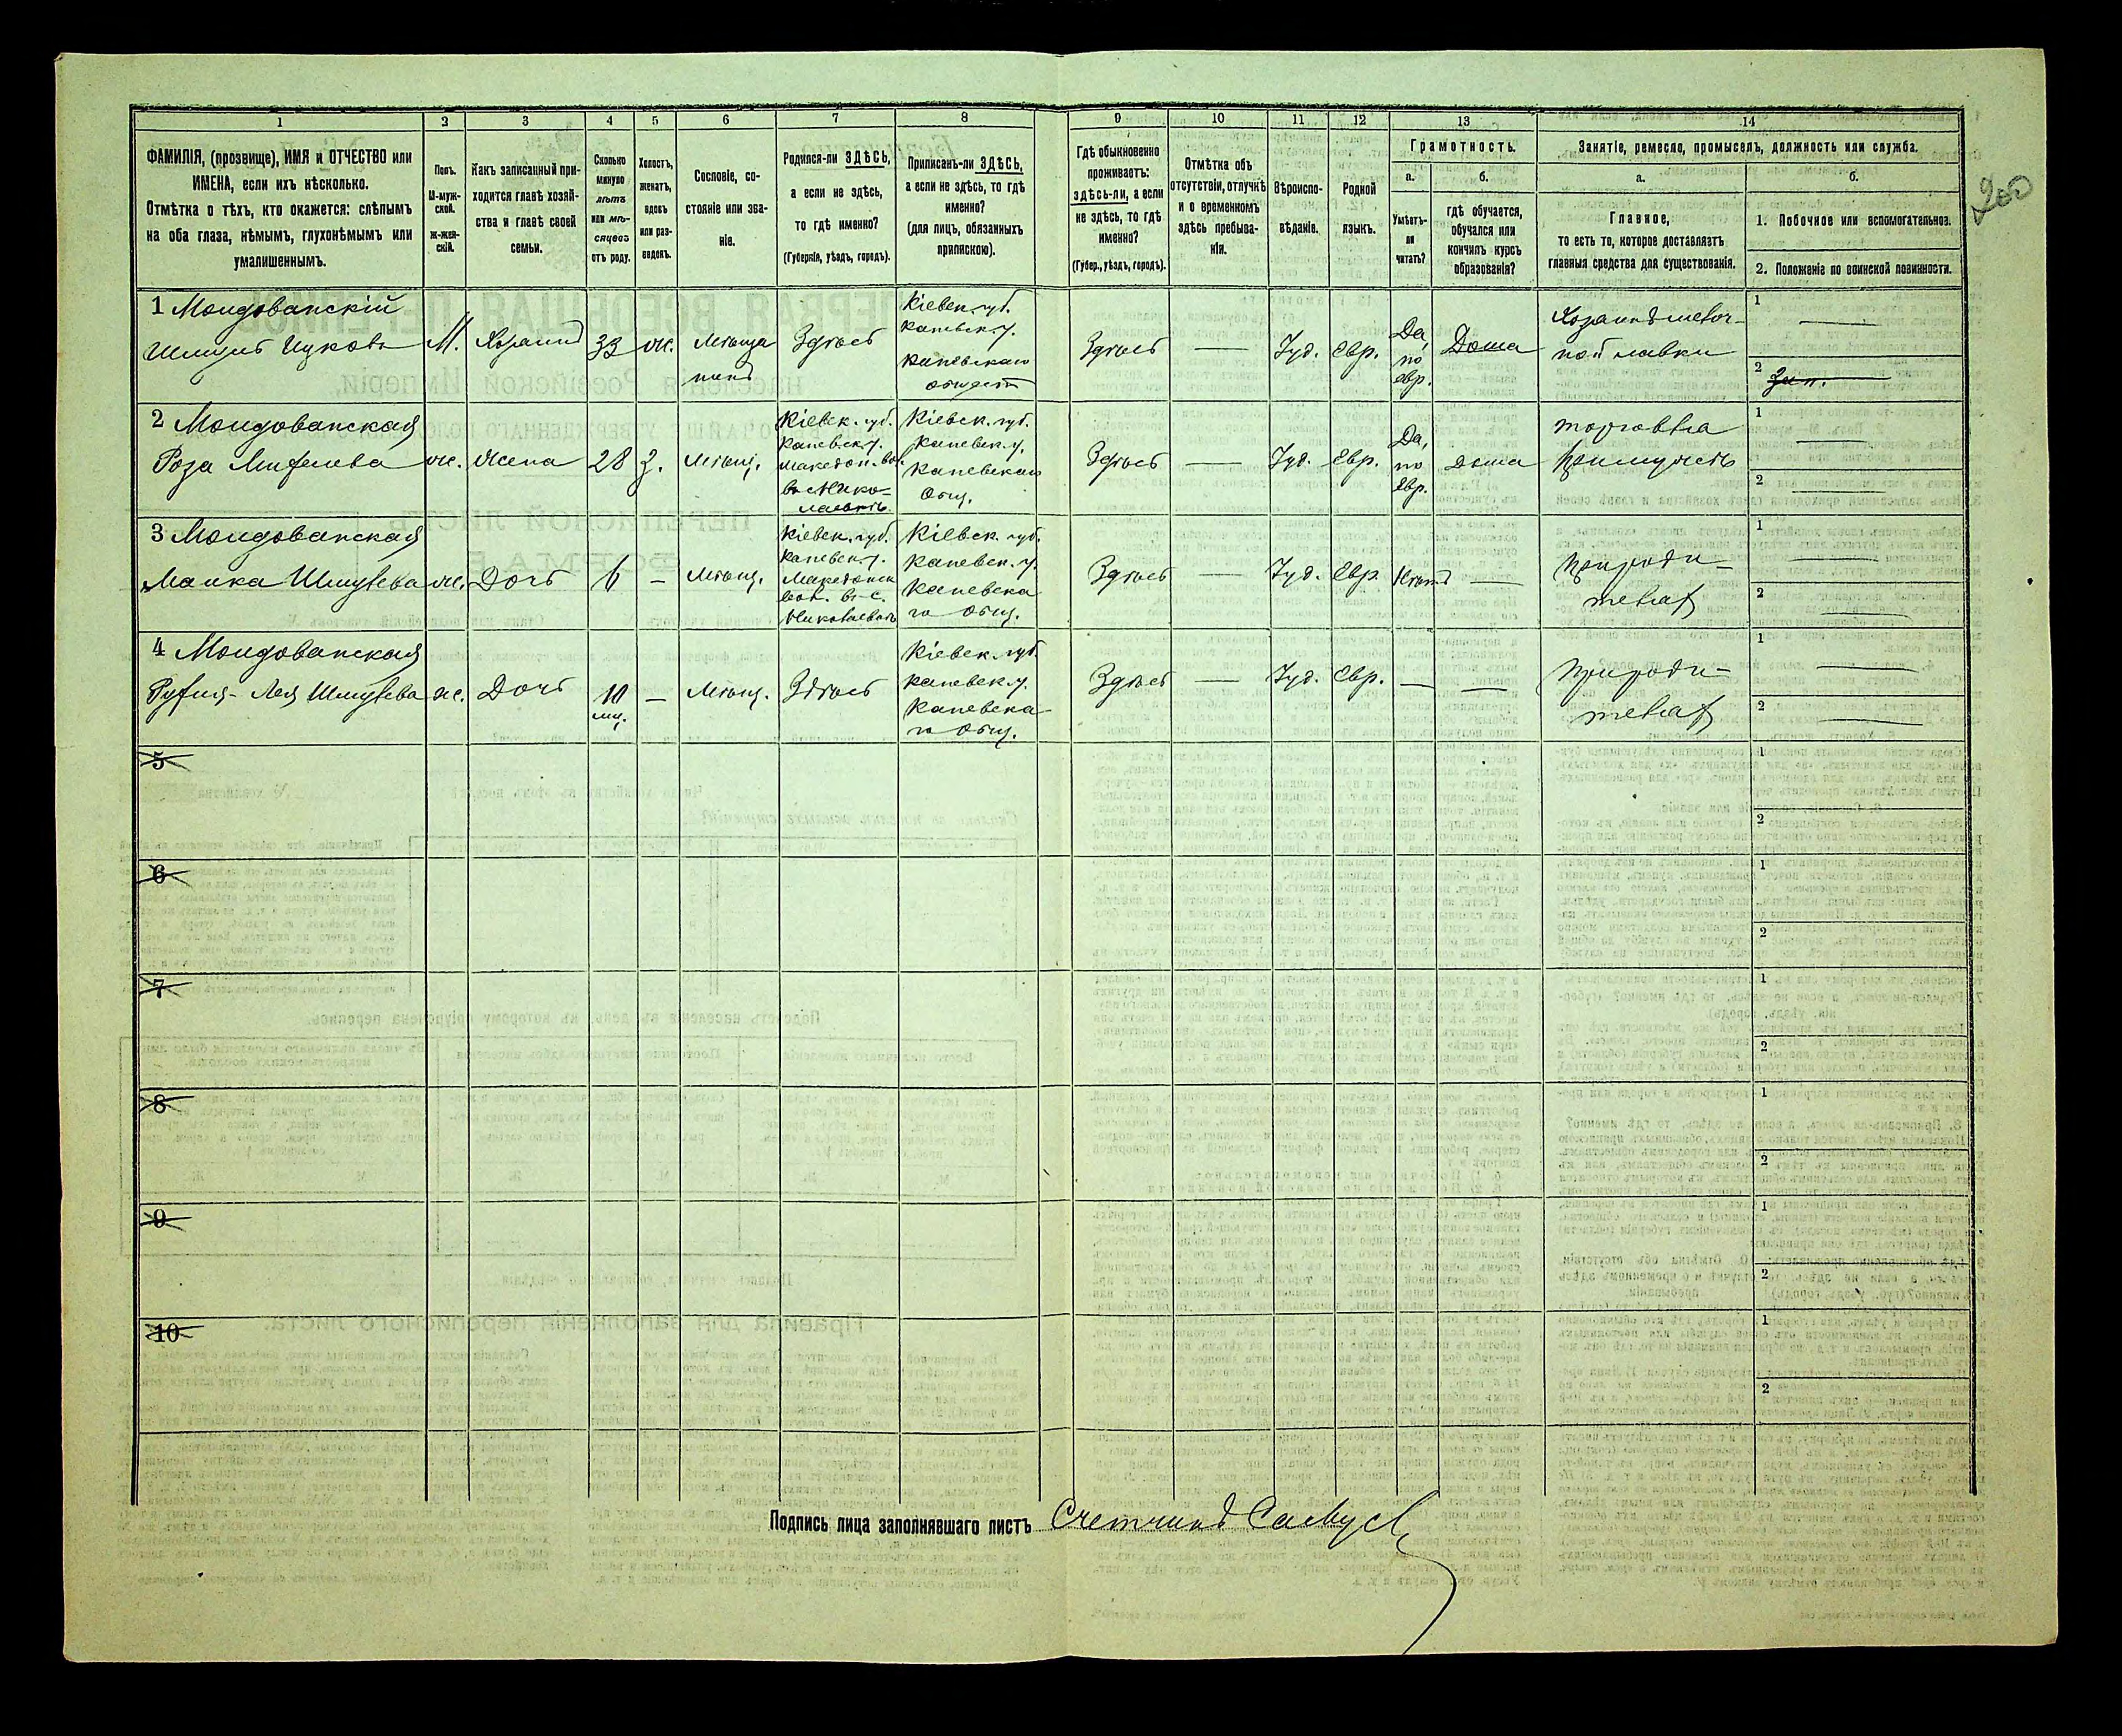 200
1 2 3 4 5 6 7 8 9 10 11 12 13 14
ФАМИЛІЯ, (прозвище), ИМЯ и ОТЧЕСТВО или
ИМЕНА, если ихъ нѣсколько.
Отмѣтка о тѣхъ, кто окажется: слѣпымъ
на оба глаза, нѣмымъ, глухонѣмымъ или
умалишеннымъ.
Полъ.
М-муж-
ской.
ж-жен-
скій.
Какъ записанный при-
ходится главѣ хозяй-
ства и главѣ своей
семьи.
Сколько
минуло
лѣтъ
или мѣ-
сяцевъ
отъ роду.
Холостъ,
женатъ,
вдовъ
или раз-
веденъ.
Сословіе, со-
стояніе или зва-
ніе.
Родился-ли ЗДѢСЬ,
а если не здѣсь,
то гдѣ именно?
(Губернія, уѣздъ, городъ).
Приписанъ-ли ЗДѢСЬ,
а если не здѣсь, то гдѣ
именно?
(для лицъ, обязанныхъ
припискою).
Гдѣ обыкновенно
проживаетъ:
здѣсь-ли, а если
не здѣсь, то гдѣ
именно?
(Губер., уѣздъ, городъ).
Отмѣтка объ
отсутствіи, отлучкѣ
и о временномъ
здѣсь пребыва-
ніи.
Вѣроиспо-
вѣданіе.
Родной
языкъ.
Грамотность.
а.
Умѣетъ-
ли
читать?
б.
гдѣ обучается,
обучался или
кончилъ курсъ
образованія?
Занятіе, ремесло, промыселъ, должность или служба.
а.
Главное,
то есть то, которое доставляетъ
главныя средства для существованія.
б.
1. Побочное или вспомогательное.
2. Положеніе по воинской повинности.
1 Молдованскій
Шмуль Ицковъ
М.
Хозяинъ
33
ж.
Мѣща
нинъ
Здѣсь
Кіевск. губ.
Каневск. у.
Каневскаго
Общест
Здѣсь
—
Іуд.
Евр.
Да,
по
евр.
Дома
Хозяинъ мелоч-
ной лавки
1 —
2 Зап.
2 Молдованская
Роза
ж.
Жена
28
З.
Мѣщ.
Кіевск. губ.
Каневск. у.
Македон. вол.
въ с. Нико-
лаевкѣ.
Кіевск. губ.
Каневск. у.
Каневскаго
Общ.
Здѣсь
—
Іуд.
Евр.
Да,
по
Евр.
Дома
торговля
1 —
2 —
3 Молдованская
Малка Шмулева
ж.
Дочь
6
—
Мѣщ.
Кіевск. губ.
Каневск. у.
Македонск
вол. въ с.
Николаевкѣ
Кіевск. губ.
Каневск. у.
Каневска
го Общ.
Здѣсь
—
Іуд.
Евр.
Нѣтъ
—
При роди-
теляхъ
1 —
2 —
4 Молдованская
Лея Шмулева
ж.
Дочь
10
мц.
—
Мѣщ.
Здѣсь
Кіевск. губ.
Каневск. у.
Каневска
го Общ.
Здѣсь
—
Іуд.
Евр.
—
—
При роди-
теляхъ
1 —
2 —
5
1
2
6
1
2
7
1
2
8
1
2
9
1
2
10
1
2
Подпись лица заполнявшаго листъ Счетчикъ